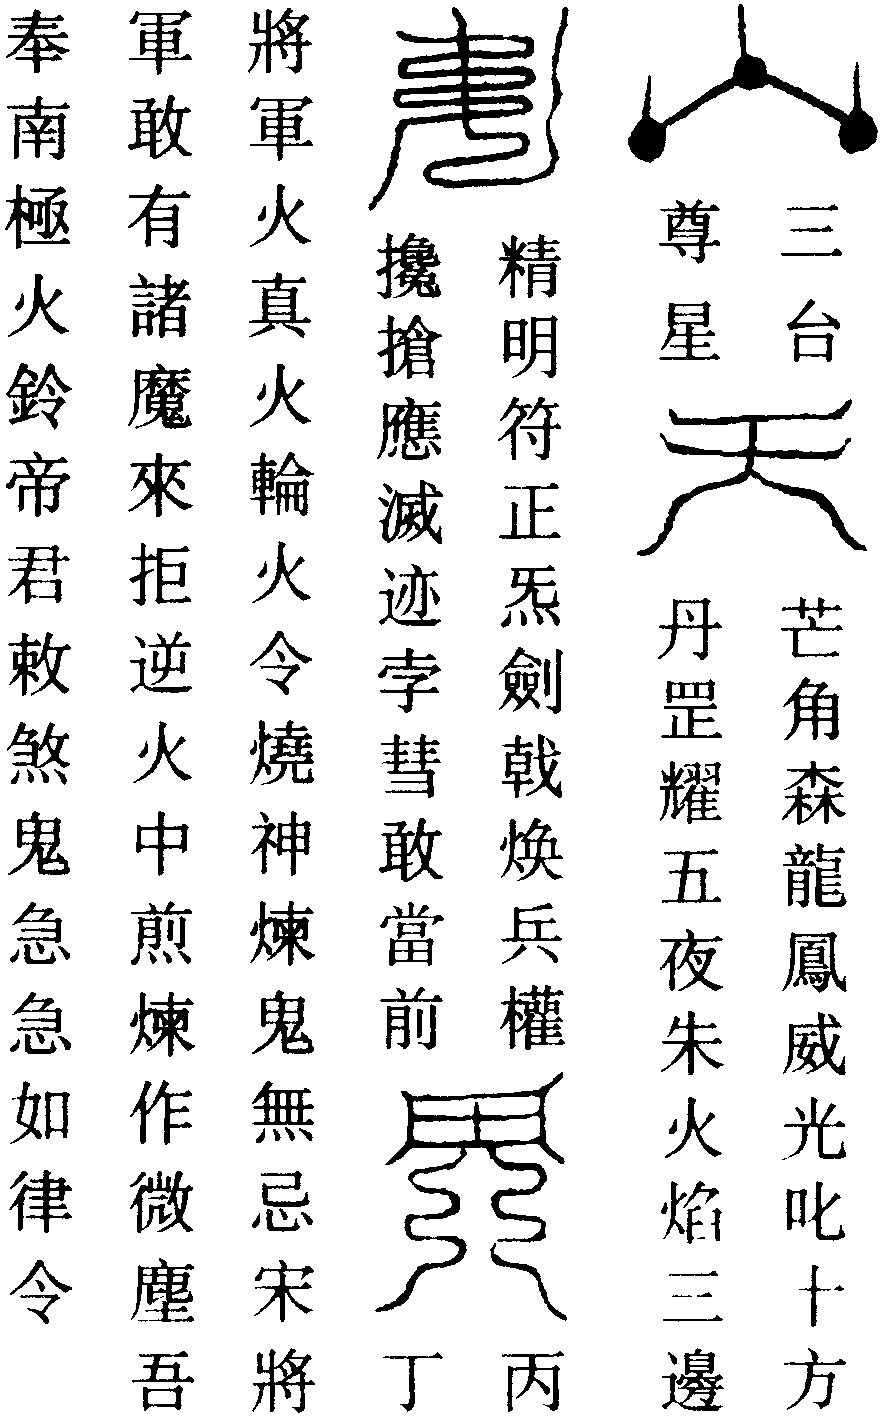 三台
尊星
芒角森龍鳳威光叱十方
丹罡耀五夜朱火焰三邊
精明符正炁劍戟焕兵權
攙搶應滅迹孛彗敢當前
丙
丁
將軍火真火輪火令燒神煉鬼無忌宋將
軍敢有諸魔來拒逆火中煎煉作微塵吾
奉南極火鈴帝君敕煞鬼急急如律令